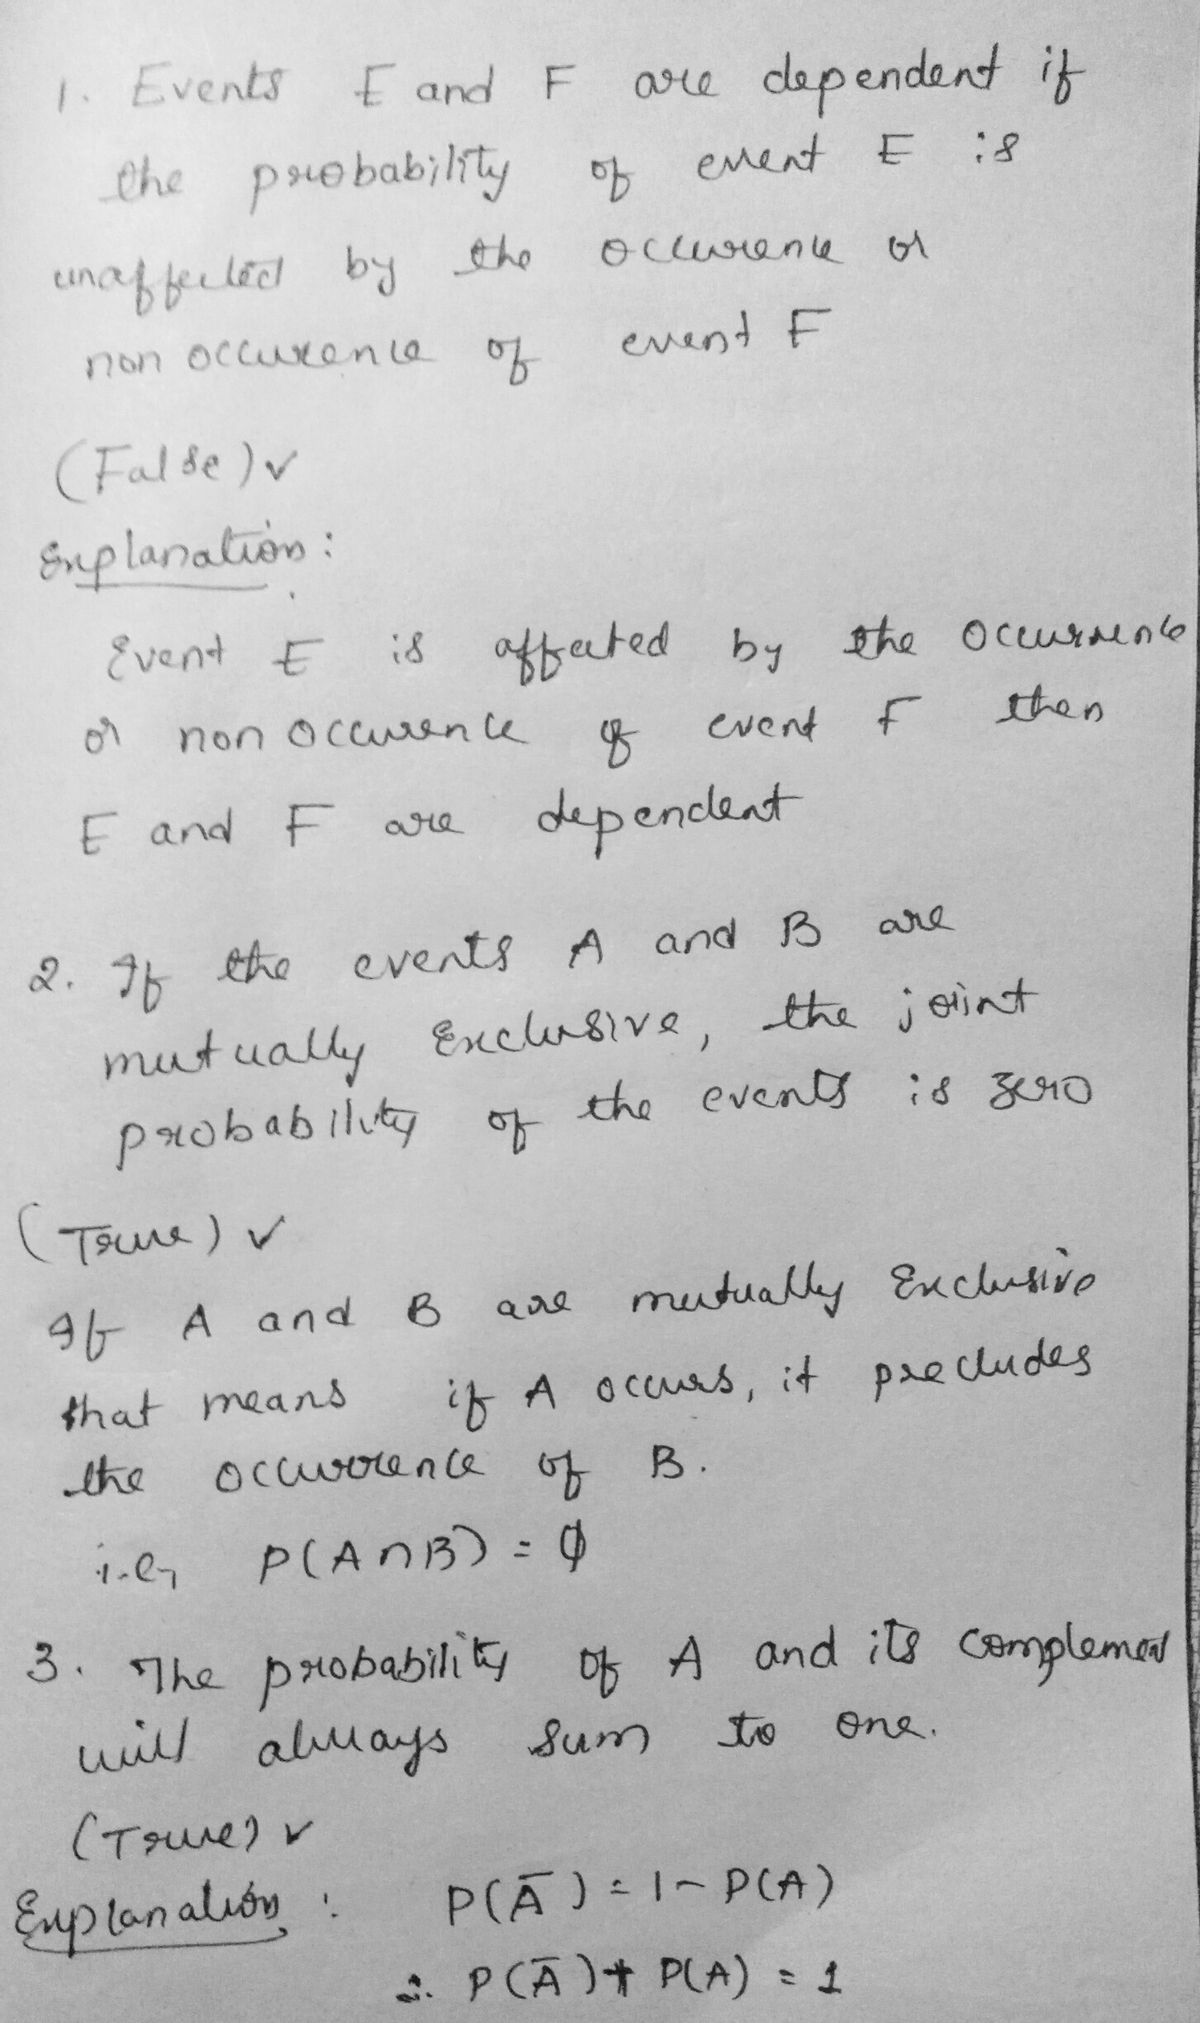 1. Events E and F are dependent if
the probability of event E is
unaffected by the occurence or
non occurence of event F
(False) ✓
Explanation:
Event E is affected by the occurrence
or non occurence of event F then
E and F are dependent
2. If the events A and B are
mutually Exclusive, the joint
probability of the events is zero
(True) ✓
If A and B are mutually Exclusive
that means if A occurs, it precludes
the occurrence of B.
i.e, P(A∩B) = ϕ
3. The probability of A and its complement
will always sum to one.
(True) ✓
Explanation : P(Ā) = 1 - P(A)
∴ P(Ā) + P(A) = 1